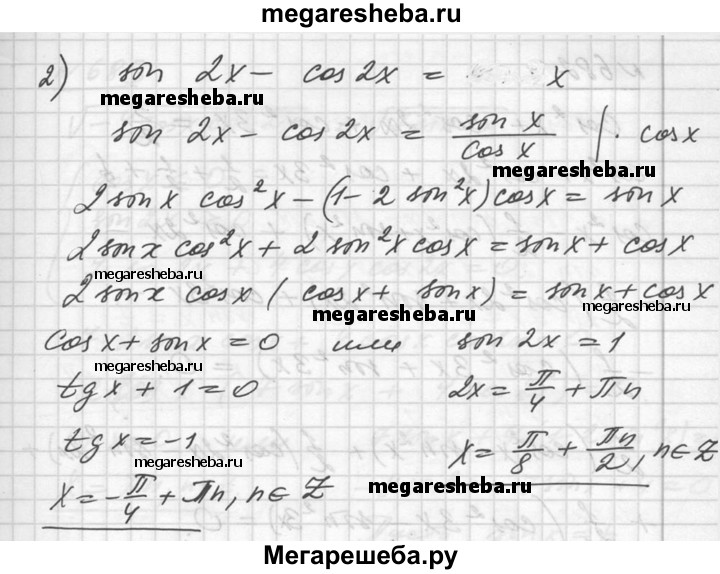 megaresheba.ru
2) sin 2x − cos 2x = x
megaresheba.ru
sin 2x − cos 2x = sin x / cos x | · cos x
megaresheba.ru
2 sin x cos²x − (1 − 2 sin²x) cos x = sin x
2 sin x cos²x + 2 sin²x cos x = sin x + cos x
megaresheba.ru
2 sin x cos x (cos x + sin x) = sin x + cos x
megaresheba.ru
cos x + sin x = 0 или sin 2x = 1
megaresheba.ru
tg x + 1 = 0 2x = π/4 + πn
tg x = −1 x = π/8 + πn/2, n ∈ Z
megaresheba.ru
x = −π/4 + πn, n ∈ Z
megaresheba.ru
Мегарешеба.ру